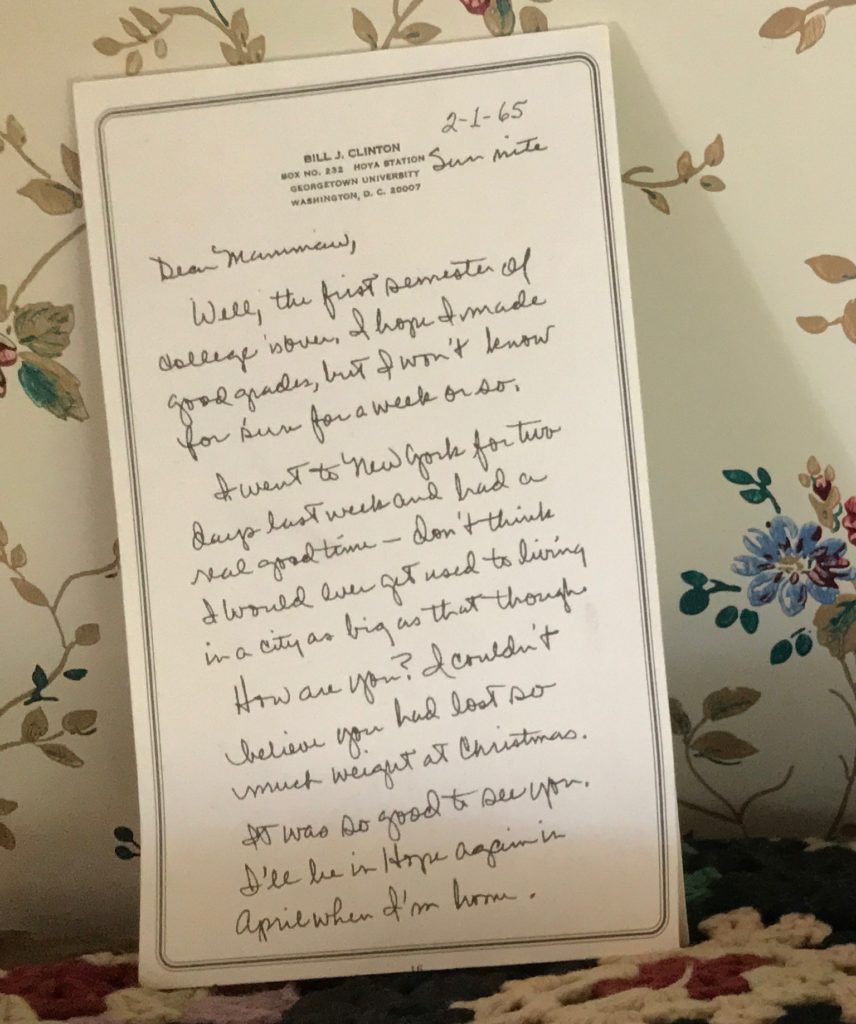 2-1-65
BILL J. CLINTON
BOX NO. 232 HOYA STATION
Sun nite
GEORGETOWN UNIVERSITY
WASHINGTON, D. C. 20007
Dear Mammaw,
Well, the first semester of
college is over. I hope I made
good grades, but I won't know
for sure for a week or so.
I went to New York for two
days last week and had a
real good time – don't think
I would ever get used to living
in a city as big as that though.
How are you? I couldn't
believe you had lost so
much weight at Christmas.
It was so good to see you.
I'll be in Hope again in
April when I'm home.